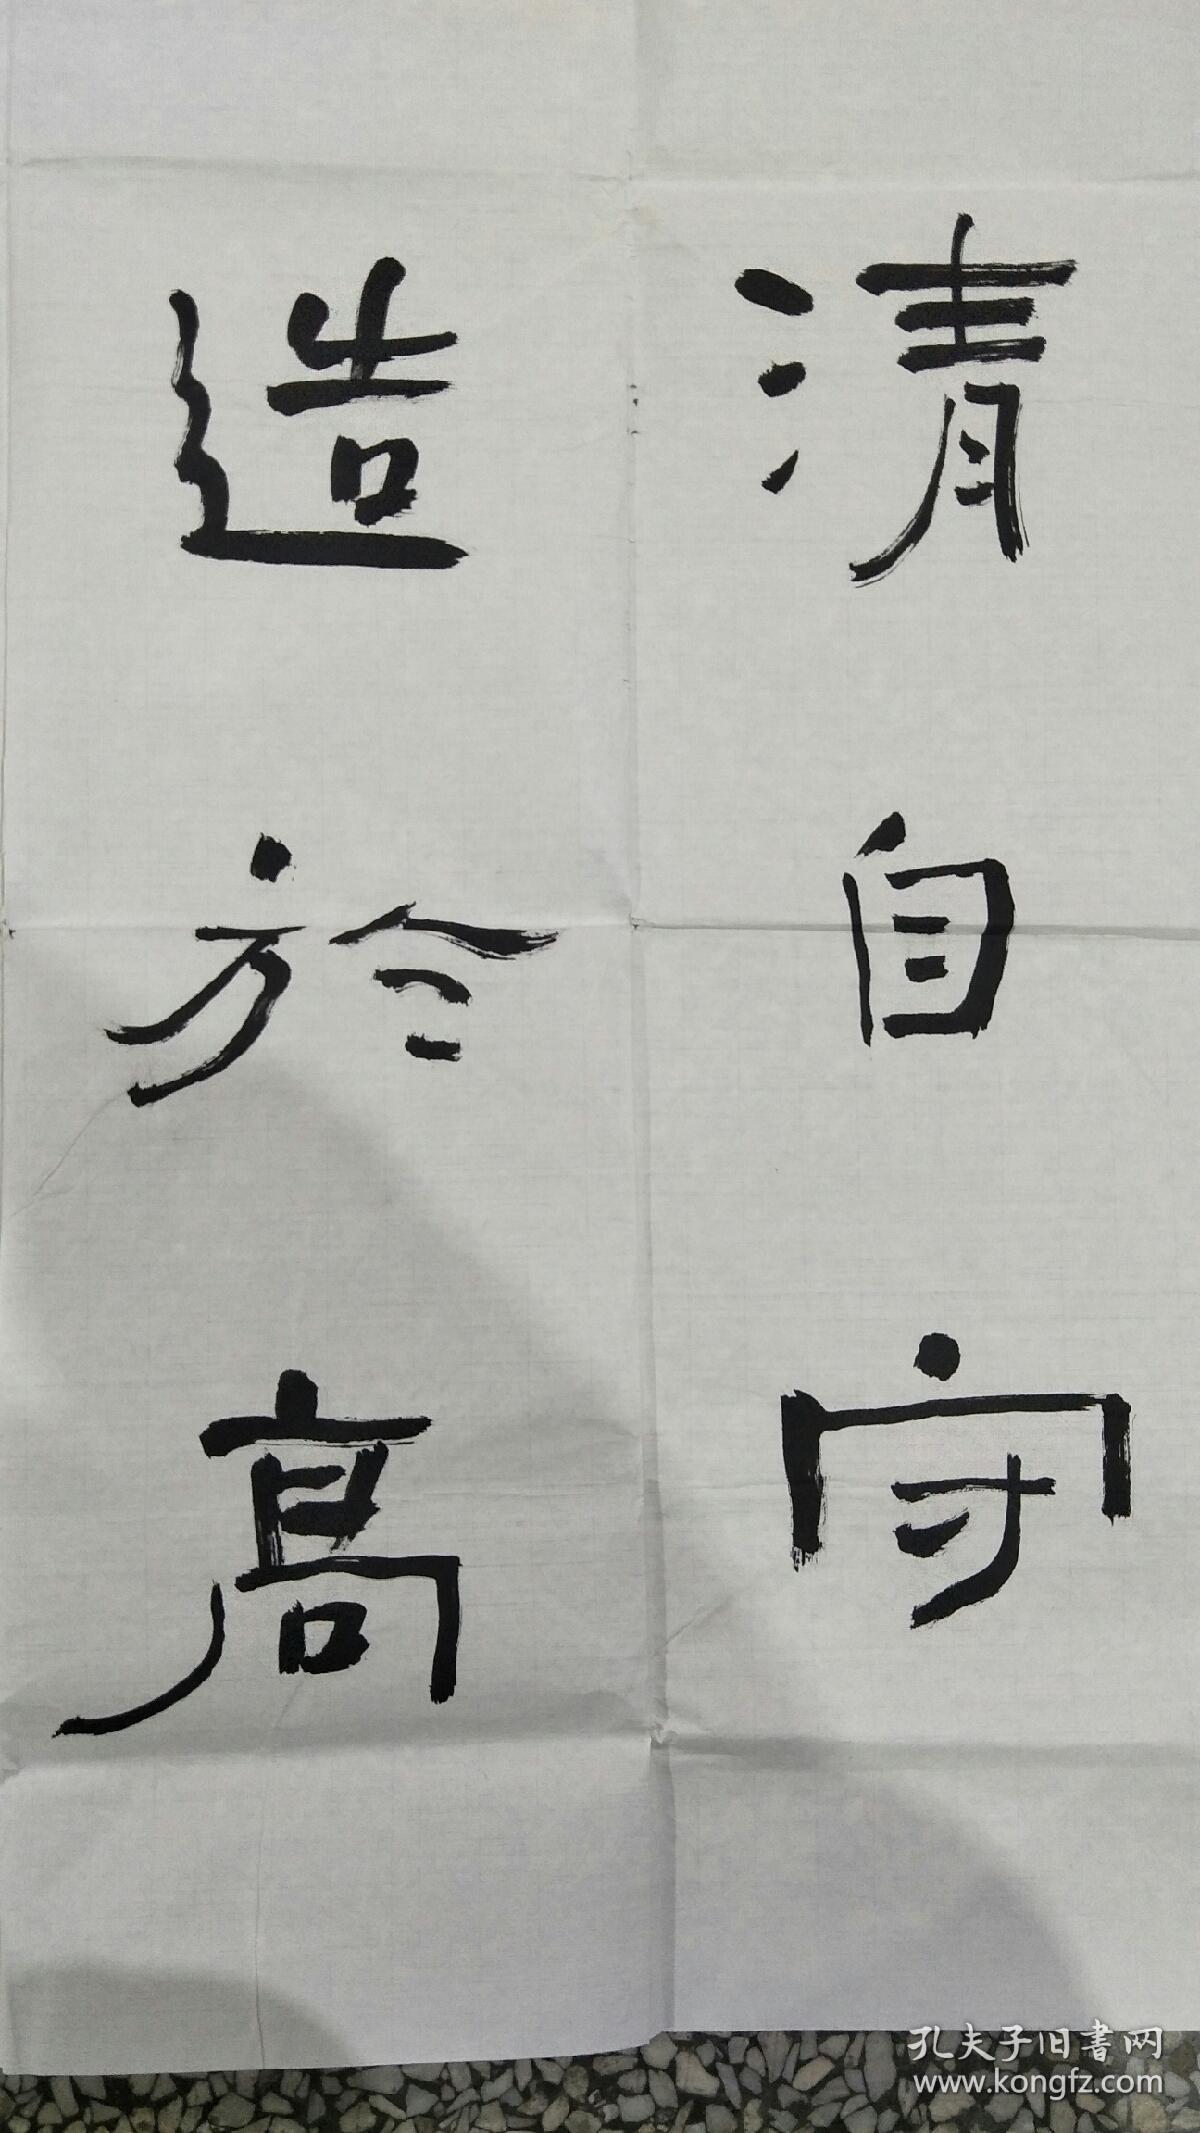 清自守
造於高
孔夫子旧書网
www.kongfz.com